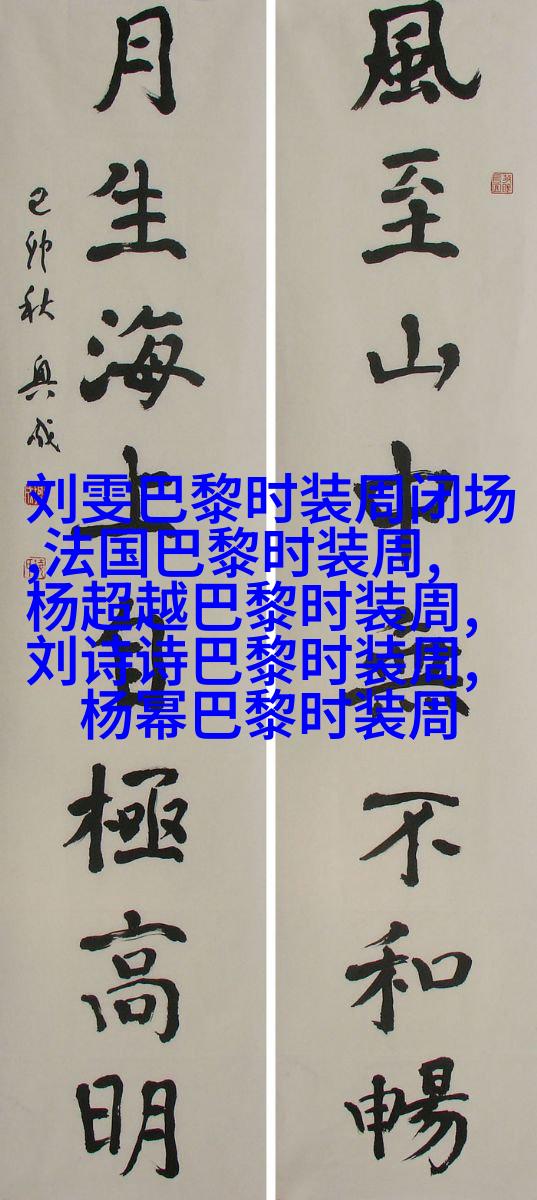 風至山中無不和暢
月生海上自極高明
己卯秋
刘雯巴黎时装周闭场
,法国巴黎时装周,
杨超越巴黎时装周,
刘诗诗巴黎时装周,
杨幂巴黎时装周